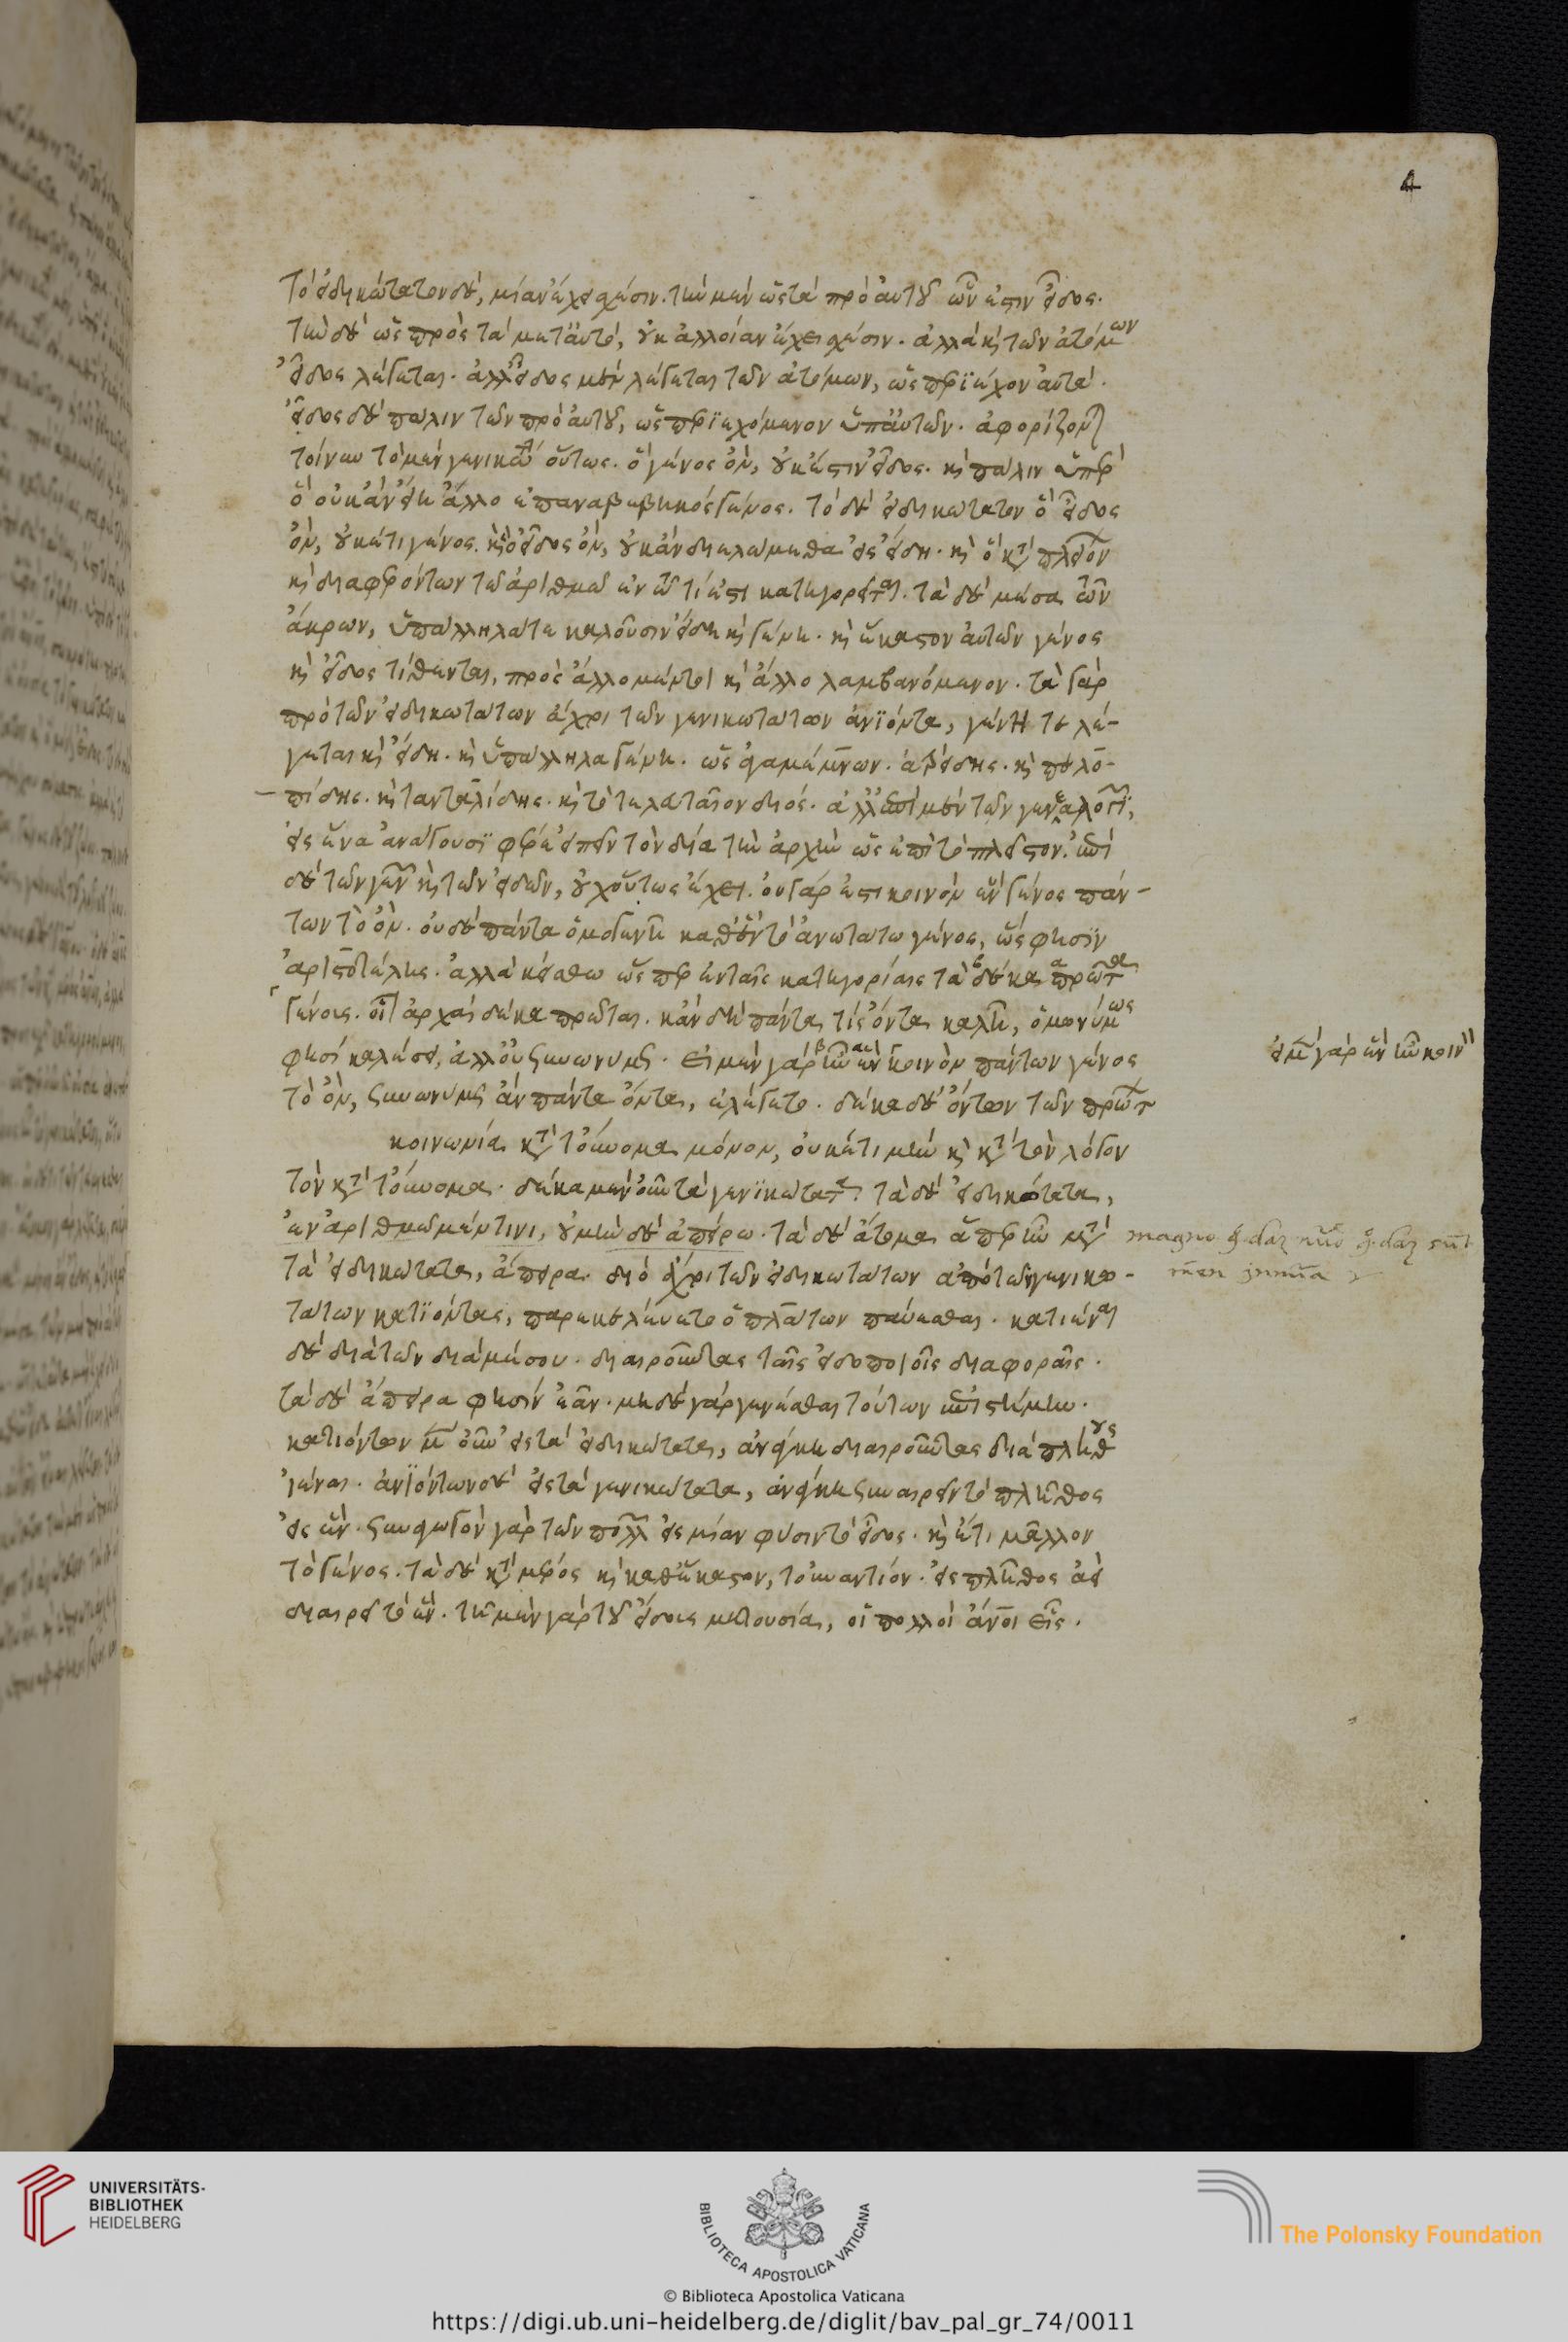 4
Τὸ εἰδικώτατον δὲ, μίαν ἔχει σχέσιν. τὴν μὲν ὡς τὰ πρὸ αὐτοῦ ὧν ἐστιν εἶδος.
τὴν δὲ ὡς πρὸς τὰ μετ' αὐτό, οὐκ ἀλλοίαν ἔχει σχέσιν. ἀλλὰ καὶ τῶν ἀτόμων
εἶδος λέγεται. ἀλλ' εἶδος μὲν λέγεται τῶν ἀτόμων, ὡς περιέχον αὐτά.
εἶδος δὲ πάλιν τῶν πρὸ αὐτοῦ, ὡς περιεχόμενον ὑπ' αὐτῶν. ἀφορίζονται
τοίνυν τὸ μὲν γενικώτατον οὕτως. ὃ γένος ὂν, οὐκ ἔστιν εἶδος. καὶ πάλιν ὑπὲρ
ὃ οὐκ ἂν εἴη ἄλλο ἐπαναβεβηκὸς γένος. τὸ δὲ εἰδικώτατον ὃ εἶδος
ὂν, οὐκ ἔτι γένος. καὶ ὃ εἶδος ὂν, οὐκ ἂν διελώμεθα εἰς εἴδη. καὶ ὃ κατὰ πλειόνων
καὶ διαφερόντων τῷ ἀριθμῷ ἐν τῷ τί ἐστι κατηγορεῖται. τὰ δὲ μέσα τῶν
ἄκρων, ὑπάλληλά τε καλοῦσιν εἴδη καὶ γένη. καὶ ἕκαστον αὐτῶν γένος
καὶ εἶδος τίθενται, πρὸς ἄλλο μέντοι καὶ ἄλλο λαμβανόμενον. τὰ γὰρ
πρὸ τῶν εἰδικωτάτων ἄχρι τῶν γενικωτάτων ἀνϊόντα, γένη τε λέ-
γεται καὶ εἴδη. καὶ ὑπάλληλα γένη. ὡς ἀγαμέμνων. ἀτρείδης. καὶ πελο-
πίδης. καὶ τανταλίδης. καὶ τὸ τελευταῖον διός. ἀλλ' ἐπὶ μὲν τῶν γενεαλογιῶν,
εἰς ἕνα ἀνάγουσι φέρε εἰπεῖν τὸν δία τὴν ἀρχὴν ὡς ἐπὶ τὸ πλεῖστον. ἐπὶ
δὲ τῶν γενῶν καὶ τῶν εἰδῶν, οὐχ οὕτως ἔχει. οὐ γάρ ἐστι κοινὸν ἓν γένος πάν-
των τὸ ὄν. οὐδὲ πάντα ὁμογενῆ καθ' ἓν τὸ ἀνωτάτω γένος, ὥς φησιν
ἀριστοτέλης. ἀλλὰ κείσθω ὥσπερ ἐν ταῖς κατηγορίαις τὰ δέκα πρῶτα
γένη. οἷον ἀρχαὶ δέκα πρῶται. κἂν δὴ πάντα τὶς ὄντα καλῇ, ὁμωνύμως
φησὶ καλέσει, ἀλλ' οὐ συνωνύμως. εἰ μὲν γὰρ ἦν ἓν κοινὸν πάντων γένος
τὸ ὂν, συνωνύμως ἂν πάντα ὄντα, ἐλέγετο. δέκα δὲ ὄντων τῶν πρώτων
κοινωνία κατὰ τοὔνομα μόνον, οὐκέτι μὴν καὶ κατὰ τὸν λόγον
τὸν κατὰ τοὔνομα. δέκα μὲν οὖν τὰ γενικώτατα. τὰ δὲ εἰδικώτατα,
ἐν ἀριθμῷ μέν τινι, οὐ μὴν δὲ ἀπείρῳ. τὰ δὲ ἄτομα ἅπερ ἐστὶ μετὰ
τὰ εἰδικώτατα, ἄπειρα. διὸ ἄχρι τῶν εἰδικωτάτων ἀπὸ τῶν γενικω-
τάτων κατϊόντας, παρεκελεύετο ὁ πλάτων παύεσθαι. κατιέναι
δὲ διὰ τῶν διὰ μέσου. διαιροῦντας ταῖς εἰδοποιοῖς διαφοραῖς.
τὰ δὲ ἄπειρα φησὶν ἐᾶν. μηδὲ γὰρ γενέσθαι τούτων ἐπιστήμην.
κατιόντων μὲν οὖν εἰς τὰ εἰδικώτατα, ἀνάγκη διαιροῦντας διὰ πλήθους
ἰέναι. ἀνϊόντων δὲ εἰς τὰ γενικώτατα, ἀνάγκη συναιρεῖν τὸ πλῆθος
εἰς ἕν. συναγωγὸν γὰρ τῶν πολλῶν εἰς μίαν φύσιν τὸ εἶδος. καὶ ἔτι μᾶλλον
τὸ γένος. τὰ δὲ κατὰ μέρος καὶ καθ' ἕκαστον, τοὐναντίον. εἰς πλῆθος ἀεὶ
διαιρεῖ τὸ ἕν. τῇ μὲν γὰρ τοῦ εἴδους μετουσίᾳ, οἱ πολλοὶ ἄνθρωποι εἷς.
εἰ μὲν γὰρ ἓν ἦν κοινὸν
UNIVERSITÄTS-
BIBLIOTHEK
HEIDELBERG
BIBLIOTECA APOSTOLICA VATICANA
The Polonsky Foundation
© Biblioteca Apostolica Vaticana
https://digi.ub.uni-heidelberg.de/diglit/bav_pal_gr_74/0011